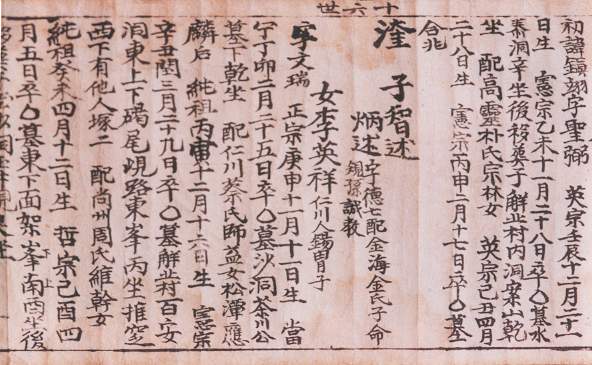 十六世
初諱鎭翊字聖弼 英宗壬辰十二月二十一
日生 憲宗乙未十一月二十八日卒〇墓水
泰洞辛坐後移葬于解北村内洞案山乾
坐 配高靈朴氏宗林女 英宗己丑四月
二十八日生 憲宗丙申二月十七日卒〇墓
合兆
洤 子智述
炳述 字德七配金海金氏子命
孫誠教
女李英祥 仁川人錫胄子
字文瑞 正宗庚申十一月十一日生 當
宁丁卯二月二十五日卒〇墓沙洞茶川公
墓下乾坐 配仁川蔡氏師益女松潭應
麟后 純祖丙寅十二月十六日生 憲宗
辛丑閏三月二十九日卒〇墓解北村百女
洞東上下碣尾峴路東峯丙坐推窆
西下有他人塚二 配尚州周氏維幹女
純祖癸未四月十二日生 哲宗己酉四
月五日卒〇墓東下面架峯南酉坐後